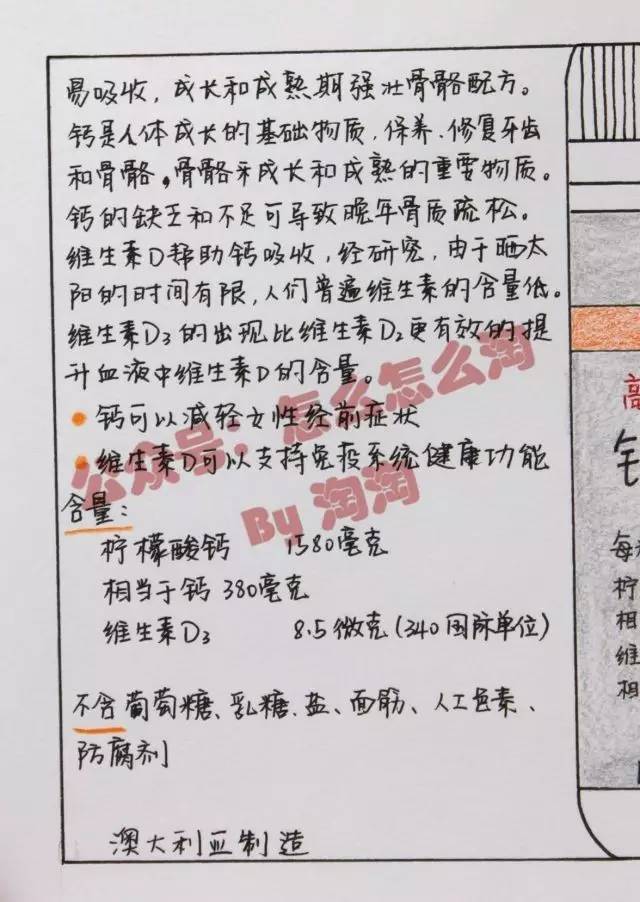 易吸收，成长和成熟期强壮骨骼配方。
钙是人体成长的基础物质，保养、修复牙齿
和骨骼，骨骼来成长和成熟的重要物质。
钙的缺乏和不足可导致晚年骨质疏松。
维生素D帮助钙吸收，经研究，由于晒太
阳的时间有限，人们普遍维生素的含量低。
维生素D3的出现比维生素D2更有效的提
升血液中维生素D的含量。
• 钙可以减轻女性经前症状
• 维生素D可以支持免疫系统健康功能
公众号：怎么怎么淘
By 淘淘
含量：
柠檬酸钙 1580毫克
相当于钙 380毫克
维生素D3 8.5微克(340国际单位)
不含葡萄糖、乳糖、盐、面筋、人工色素、
防腐剂
澳大利亚制造
高
每
柠
相
维
相